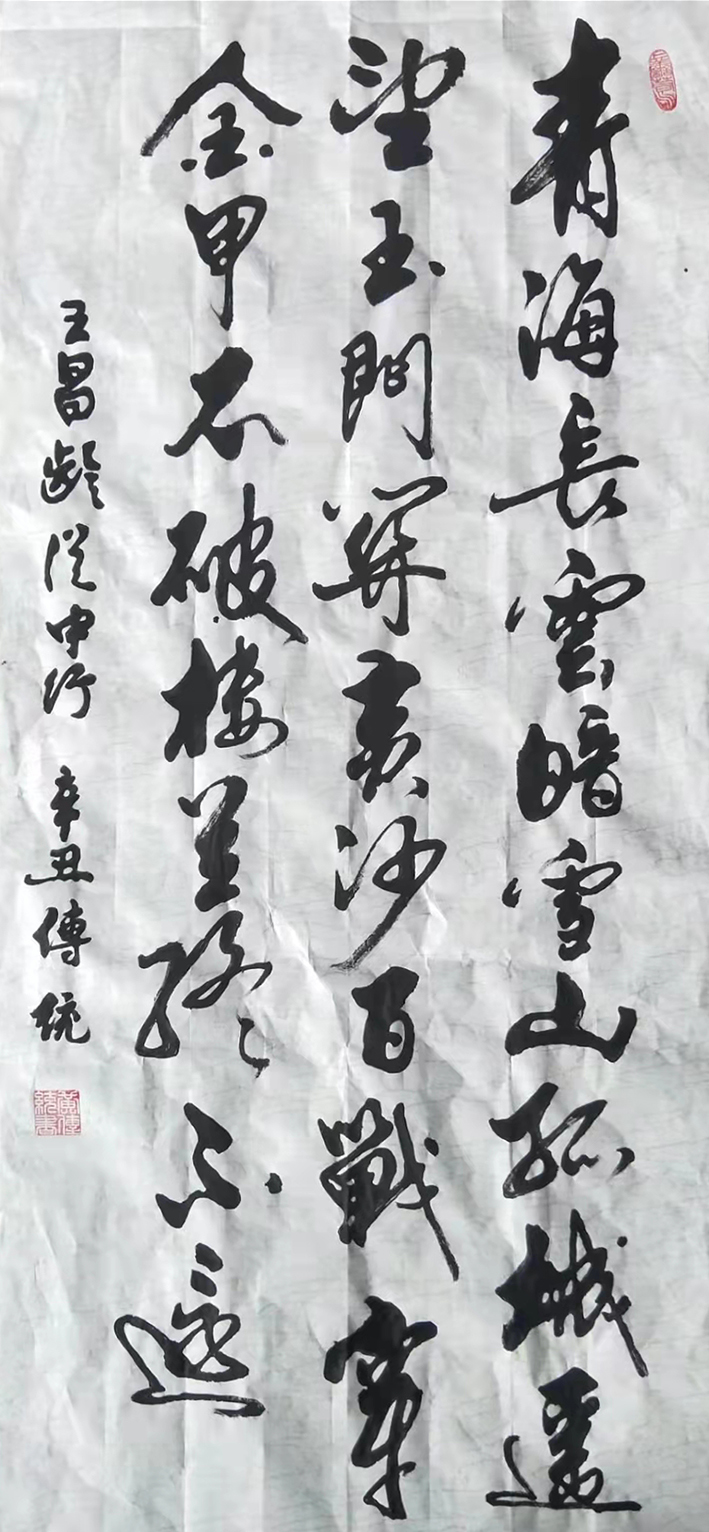 青海長雲暗雪山孤城遥
望玉門關黄沙百戰穿
金甲不破樓兰終不還
王昌齡從軍行 辛丑傳統
黄傳統書